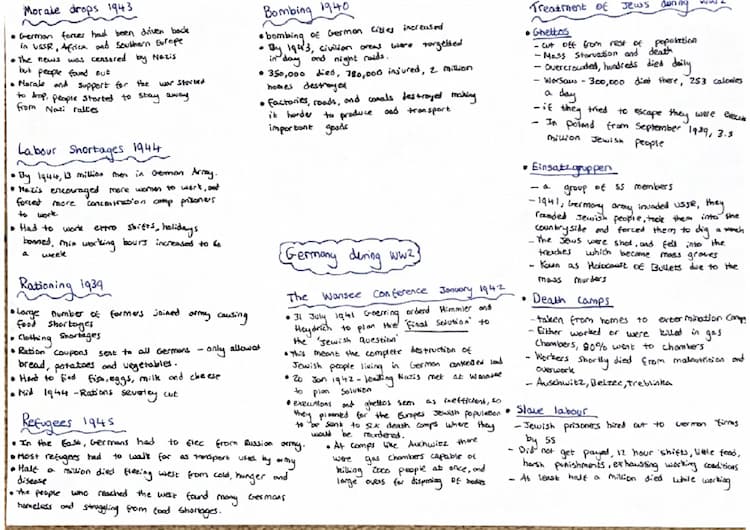 Morale drops 1943
• German forces had been driven back
in USSR, Africa and Southern Europe
• The news was censored by Nazis
but people found out
• Morale and support for the war started
to drop, people started to stay away
from Nazi rallies
Labour Shortages 1944
• By 1944, 13 million men in German Army.
• Nazis encouraged more women to work, and
forced more concentration camp prisoners
to work
• Had to work extra shifts, holidays
banned, min working hours increased to 60
a week
Rationing 1939
• Large number of farmers joined army causing
food shortages
• Clothing shortages
• Ration coupons sent to all Germans - only allowed
bread, potatoes and vegetables.
• Hard to find fish, eggs, milk and cheese
• Mid 1944 - Rations severley cut
Refugees 1945
• In the East, Germans had to flee from Russian army.
• Most refugees had to walk far as transport used by army
• Half a million died fleeing West from cold, hunger and
disease
• The people who reached the West found many Germans
homeless and struggling from food shortages.
Bombing 1940
• bombing of German cities increased
• By 1943, civilian areas were targetted
in day and night raids.
• 350,000 died, 780,000 injured, 2 million
homes destroyed
• Factories, roads, and canals destroyed making
it harder to produce and transport
important goods
Germany during WW2
The Wansee Conference January 1942
• 31 July 1941 Goerring orderd Himmler and
Heydrich to plan the 'final solution' to
the 'Jewish Question'
• This means the complete destruction of
Jewish people living in German controlled land
• 20 Jan 1942 - leading Nazis met at Wansee
to plan solution
• executions and ghettos seen as inefficient, so
they planned for the Europes Jewish population
to be sent to six death camps where they
would be murdered.
• At camps like there
were gas chambers capable of
killing 2000 people at once, and
large ovens for disposing of bodies
Treatment of Jews during WW2
• Ghettos
- cut off from rest of population
- Mass starvation and death
- Overcrowded, hundreds died daily
- Warsaw - 300,000 died there, 253 calories
a day
- if they tried to escape they were
- In Poland from September 1939, 3.3
million Jewish people
• Einsatzgruppen
- a group of SS members
- 1941, Germany army invaded USSR, they
rounded Jewish people, took them into the
countryside and forced them to dig a trench
- The Jews were shot, and fell into the
trenches which became mass graves
- Known as Holocaust of Bullets due to the
mass murders
• Death camps
- taken from homes to extermination camps
- Either worked or were killed in gas
chambers, 80% went to chambers
- Workers shortly died from malnutrition and
overwork
- Auschwitz, Belzec, Treblinka
• Slave labour
- Jewish prisoners hired out to German firms
by SS
- Did not get payed, 12 hour shifts, little food,
harsh punishments, exhausting working conditions
- At least half a million died while working